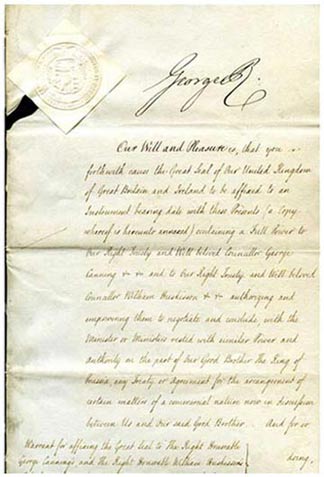 George R.
Our Will and Pleasure is, that you
forthwith cause the Great Seal of Our United Kingdom
of Great Britain and Ireland to be affixed to an
Instrument bearing date with these Presents (a Copy
whereof is hereunto annexed) containing a Full Power to
Our Right Trusty and Well beloved Councillor George
Canning &c &c and to Our Right Trusty and Well beloved
Councillor William Huskisson &c &c authorizing and
empowering them to negotiate and conclude with the
Minister or Ministers vested with similar Power and
Authority on the part of Our Good Brother The King of
Prussia, any Treaty or Agreement for the arrangement of
certain matters of a commercial nature now in discussion
between Us and Our said Good Brother. And for so
doing,
Warrant for affixing the Great Seal to The Right Honorable
George Canning's and The Right Honorable William Huskisson